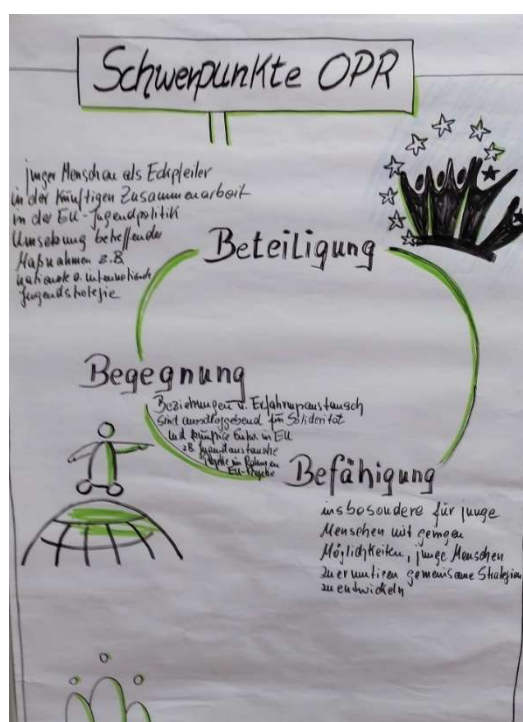 Schwerpunkte OPR
junger Menschen als Eckpfeiler
in der künftigen Zusammenarbeit
in der EU-Jugendpolitik
Umsetzung
Maßnahmen z.B.
nationale o. internationale
Jugendstrategie
Beteiligung
Begegnung
Beziehungen u. Erfahrungsaustausch
sind ausschlaggebend für Solidarität
und künftige Entw. in EU
z.B. Jugendaustausche
Projekte im Rahmen
EU-Projekte
Befähigung
insbesondere für junge
Menschen mit geringen
Möglichkeiten, junge Menschen
zu ermutigen gemeinsame Strategien
zu entwickeln